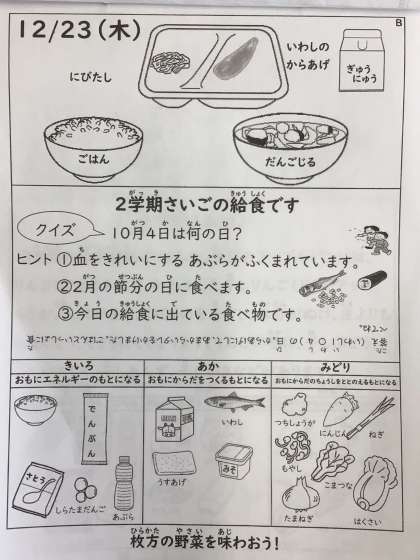 12/23(木)
B
にびたし
いわしの
からあげ
ぎゅう
にゅう
ごはん
だんごじる
2学期さいごの給食です
がっき
きゅうしょく
クイズ
10月4日は何の日?
がつ か なん ひ
ヒント ①血をきれいにする あぶらがふくまれています。
ち
②2月の節分の日に食べます。
がつ せつぶん ひ た
③今日の給食に出ている食べ物です。
きょう きゅうしょく で た もの
きいろ
おもにエネルギーのもとになる
あか
おもにからだをつくるもとになる
みどり
おもにからだのちょうしをととのえるもとになる
でんぷん
さとう
しらたまだんご
あぶら
いわし
うすあげ
みそ
つちしょうが
にんじん
ねぎ
もやし
こまつな
たまねぎ
はくさい
ひらかた やさい あじ
枚方の野菜を味わおう!